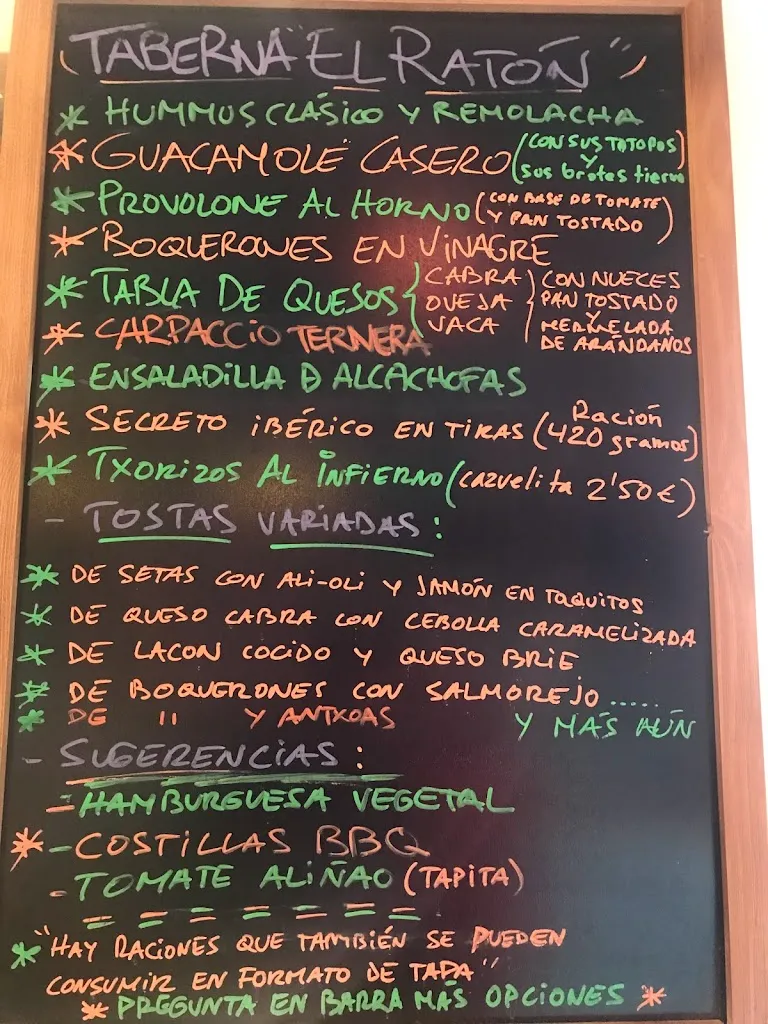 "TABERNA "EL RATÓN"
* HUMMUS CLÁSICO Y REMOLACHA
* GUACAMOLE CASERO (CON SUS TOTOPOS
Y
sus brotes tiernos)
* PROVOLONE AL HORNO (CON BASE DE TOMATE
Y PAN TOSTADO)
* BOQUERONES EN VINAGRE
* TABLA DE QUESOS { CABRA } CON NUECES
OVEJA PAN TOSTADO
VACA Y
MERMELADA
DE ARÁNDANOS
* CARPACCIO TERNERA
* ENSALADILLA D ALCACHOFAS
* SECRETO IBÉRICO EN TIRAS (Ración
420 gramos)
* TXORIZOS AL INFIERNO (cazuelita 2'50 €)
- TOSTAS VARIADAS:
* DE SETAS CON ALI-OLI Y JAMÓN EN TAQUITOS
* DE QUESO CABRA CON CEBOLLA CARAMELIZADA
* DE LACON COCIDO Y QUESO BRIE
* DE BOQUERONES CON SALMOREJO.....
* DE " Y ANTXOAS Y MÁS AÚN
- SUGERENCIAS:
- HAMBURGUESA VEGETAL
* - COSTILLAS BBQ
- TOMATE ALIÑAO (TAPITA)
= = = = = = =
* "HAY RACIONES QUE TAMBIÉN SE PUEDEN
CONSUMIR EN FORMATO DE TAPA"
* PREGUNTA EN BARRA MÁS OPCIONES *